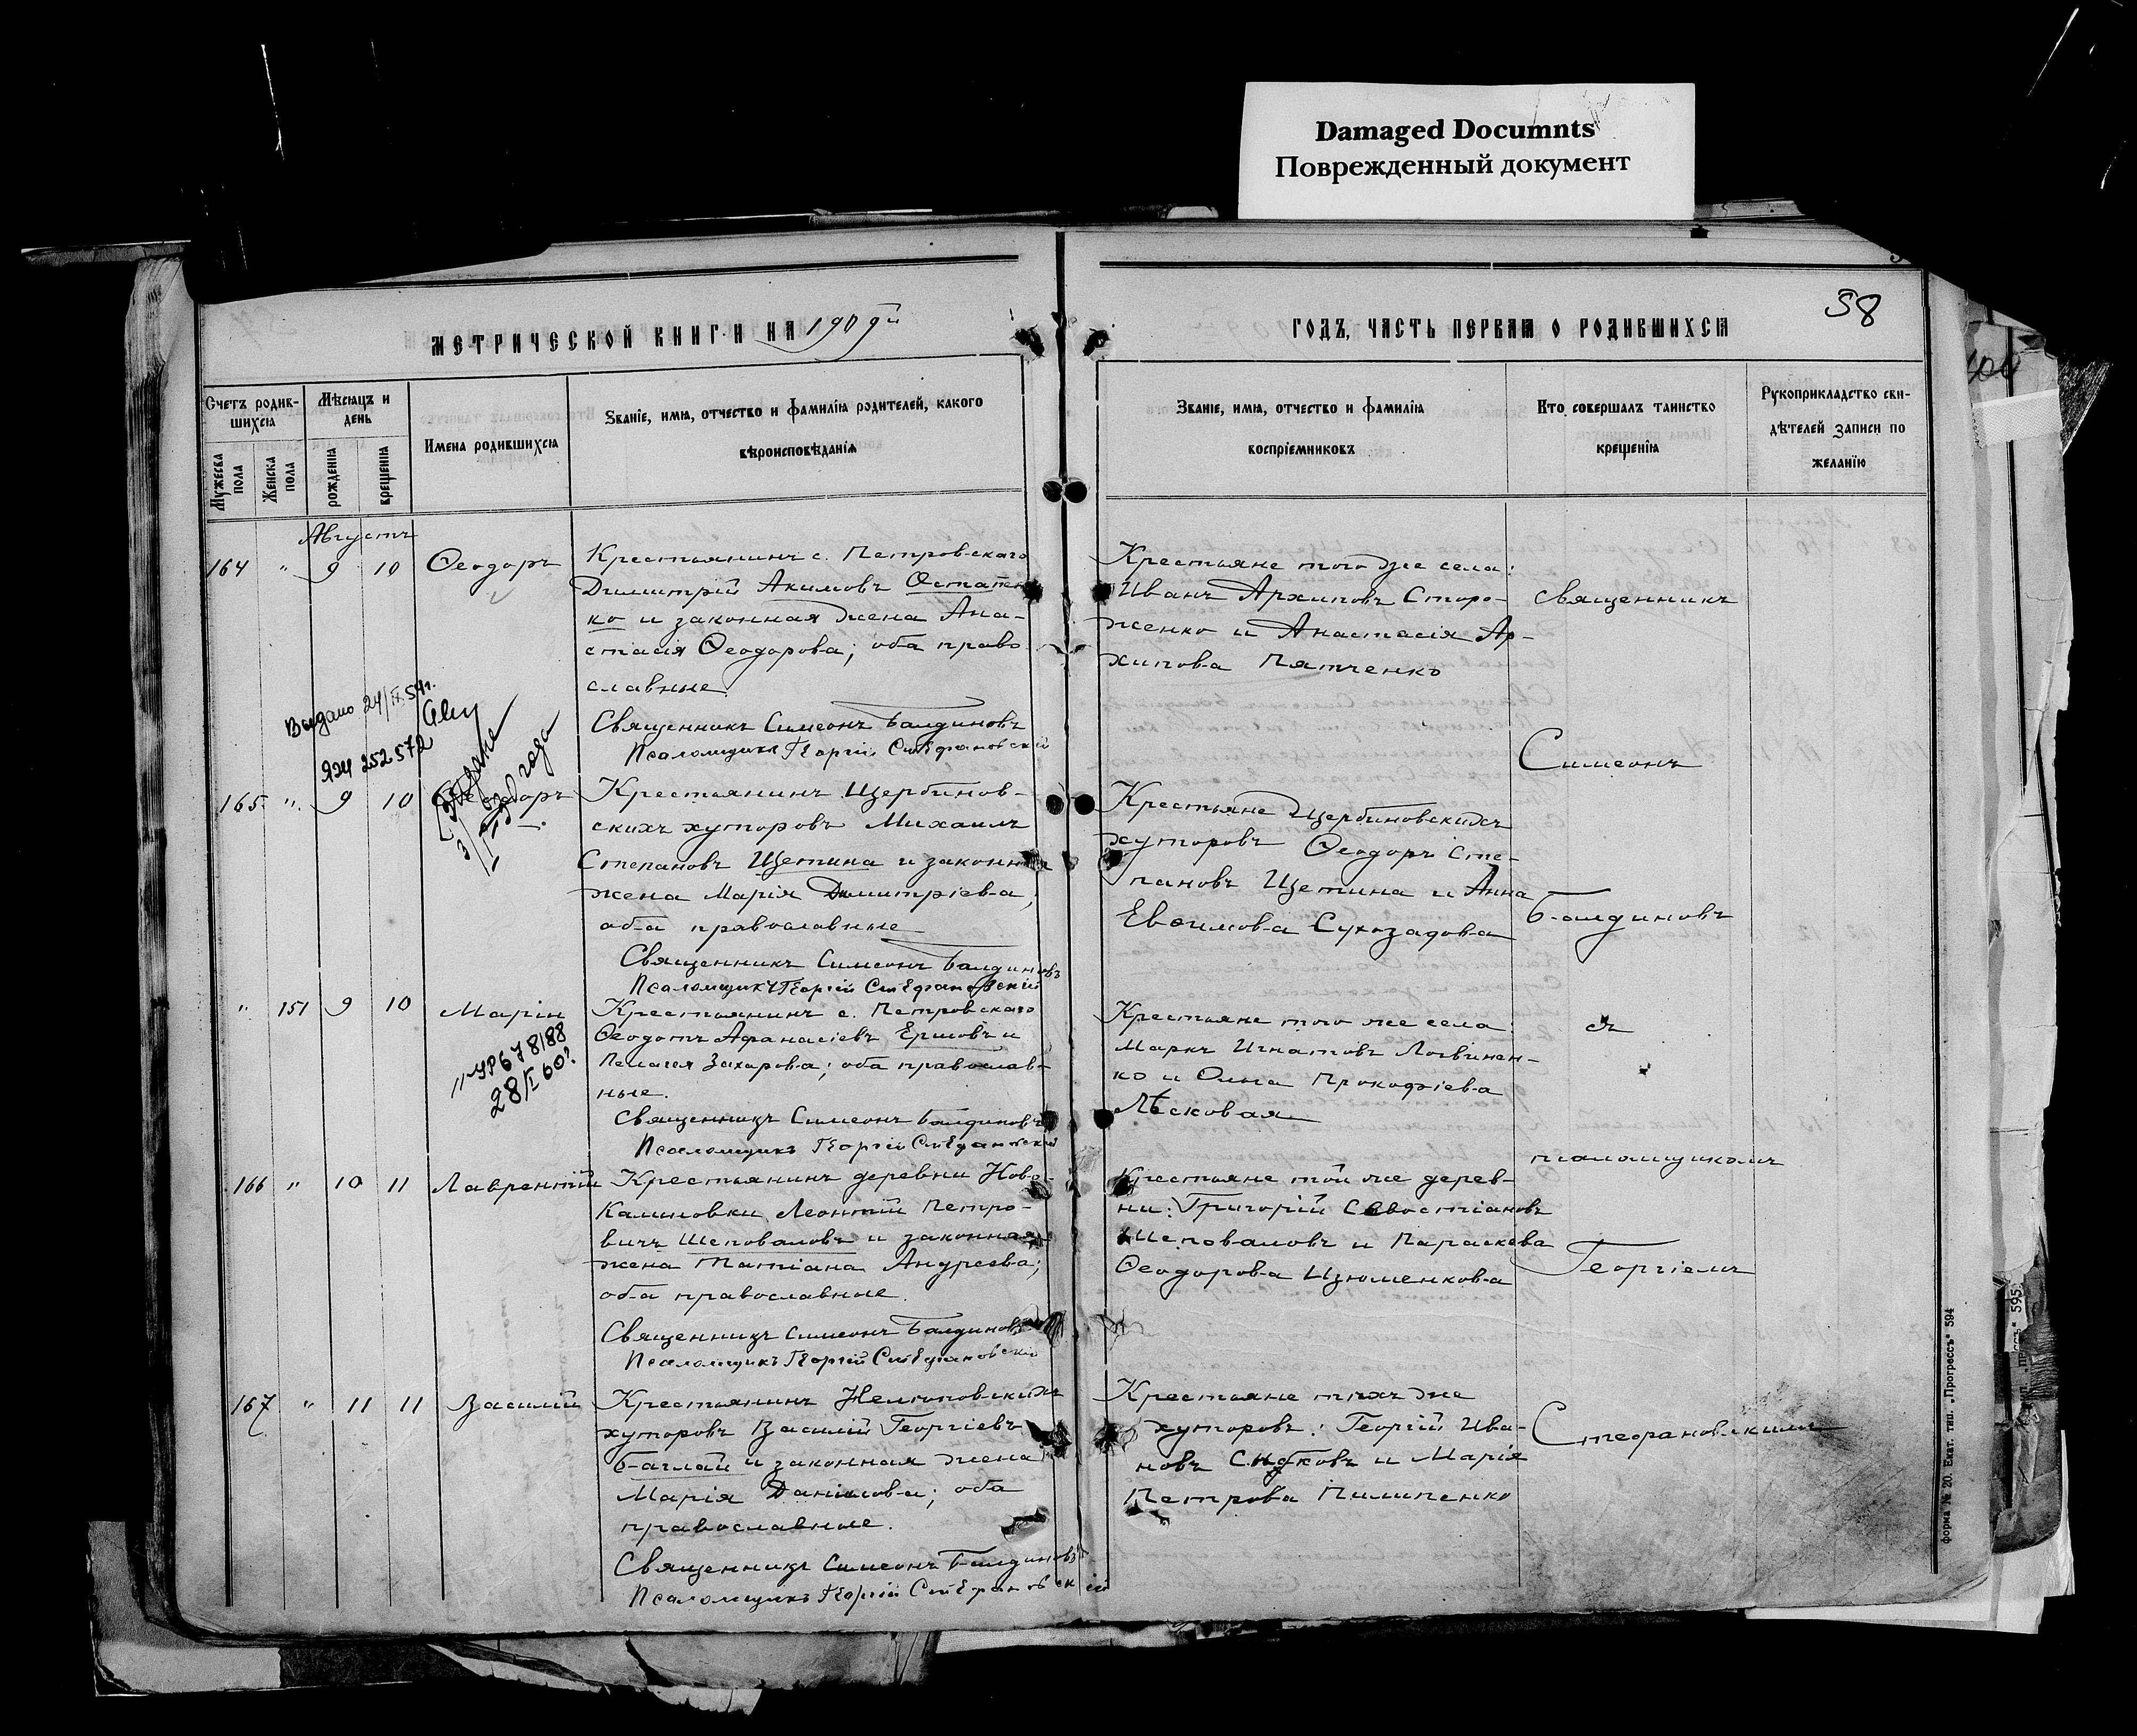 Damaged Documnts
Поврежденный документ
58
МЕТРИЧЕСКОЙ КНИГИ НА 1909й
ГОДЪ, ЧАСТЬ ПЕРВАЯ О РОДИВШИХСЯ
Счетъ родив-
шихся
Мужеска
пола
Женска
пола
Мѣсяцъ и
день
рожденія
крещенія
Имена родившихся
Званіе, имя, отчество и фамилія родителей, какого
вѣроисповѣданія
Званіе, имя, отчество и фамилія
воспріемниковъ
Кто совершалъ таинство
крещенія
Рукоприкладство сви-
дѣтелей записи по
желанію
Августъ
164 " 9 10 Ѳеодоръ
Крестьянинъ с. Петровскаго
Димитрій Акимовъ Остапен
ко и законная жена Ана-
стасія Ѳеодорова; оба право
славные.
Священникъ Симеонъ Балдиновъ
Псаломщикъ Георгій Стефановскій
Крестьяне того же села:
Иванъ Архиповъ Сторо-
женко и Анастасія Ар-
хипова Пятченко
Выдано 24/II.54г.
ЯЧ 252572
165 " 9 10 Ѳеодоръ
3/II года
Крестьянинъ Щербинов-
скихъ хуторовъ Михаилъ
Степановъ Щетина и законная
жена Марія Димитріева,
оба православные
Священникъ Симеонъ Балдиновъ
Псаломщикъ Георгій Стефановскій
Крестьяне Щербиновскихъ
хуторовъ Ѳеодоръ Сте-
пановъ Щетина и Анна
Евѳимова Сухозадова
" 151 9 10 Марія
УР 678188
28/I 60г
Крестьянинъ с. Петровскаго
Ѳеодотъ Афанасіевъ Ершовъ и
Пелагея Захарова; оба православ-
ные.
Священникъ Симеонъ Балдиновъ
Псаломщикъ Георгій Стефановскій
Крестьяне того же села:
Маркъ Игнатовъ Логвинен-
ко и Ольга Прокофіева
Лѣсковая
166 " 10 11 Лаврентій
Крестьянинъ деревни Ново-
Калиновки Леонтій Петро-
вичъ Шеповаловъ и законная
жена Татіана Андреева;
оба православные.
Священникъ Симеонъ Балдиновъ
Псаломщикъ Георгій Стефановскій
Крестьяне той же дерев-
ни: Григорій Севостіановъ
Шеповаловъ и Параскева
Ѳеодорова Изюменкова
167 " 11 11 Василій
Крестьянинъ Нелюповскихъ
хуторовъ Василій Георгіевъ
Баглай и законная жена
Марія Данилова; оба
православные.
Священникъ Симеонъ Балдиновъ
Псаломщикъ Георгій Стефановскій
Крестьяне тѣхъ же
хуторовъ: Георгій Ива-
новъ и Марія
Петрова Пилипенко
священникъ
Симеонъ
Балдиновъ
съ
псаломщикомъ
Георгіемъ
Стефановскимъ
форма № 20. Екат. тип. „Прогрессъ" 594